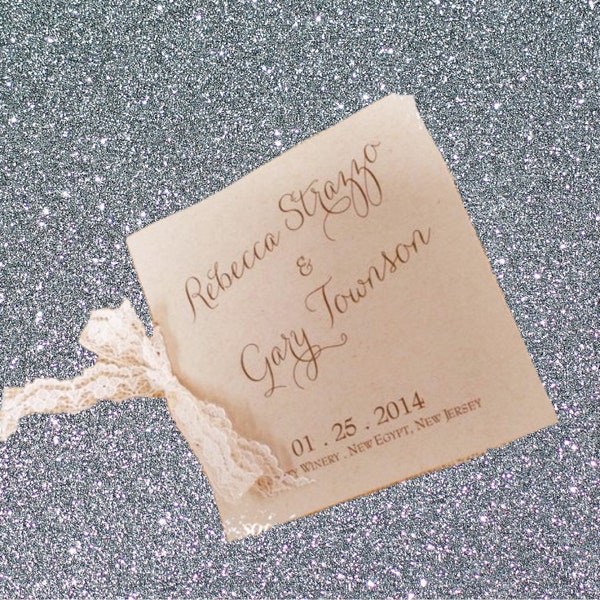 Rebecca Strazzo
&
Gary Townson
01 . 25 . 2014
Winery . New Egypt, New Jersey